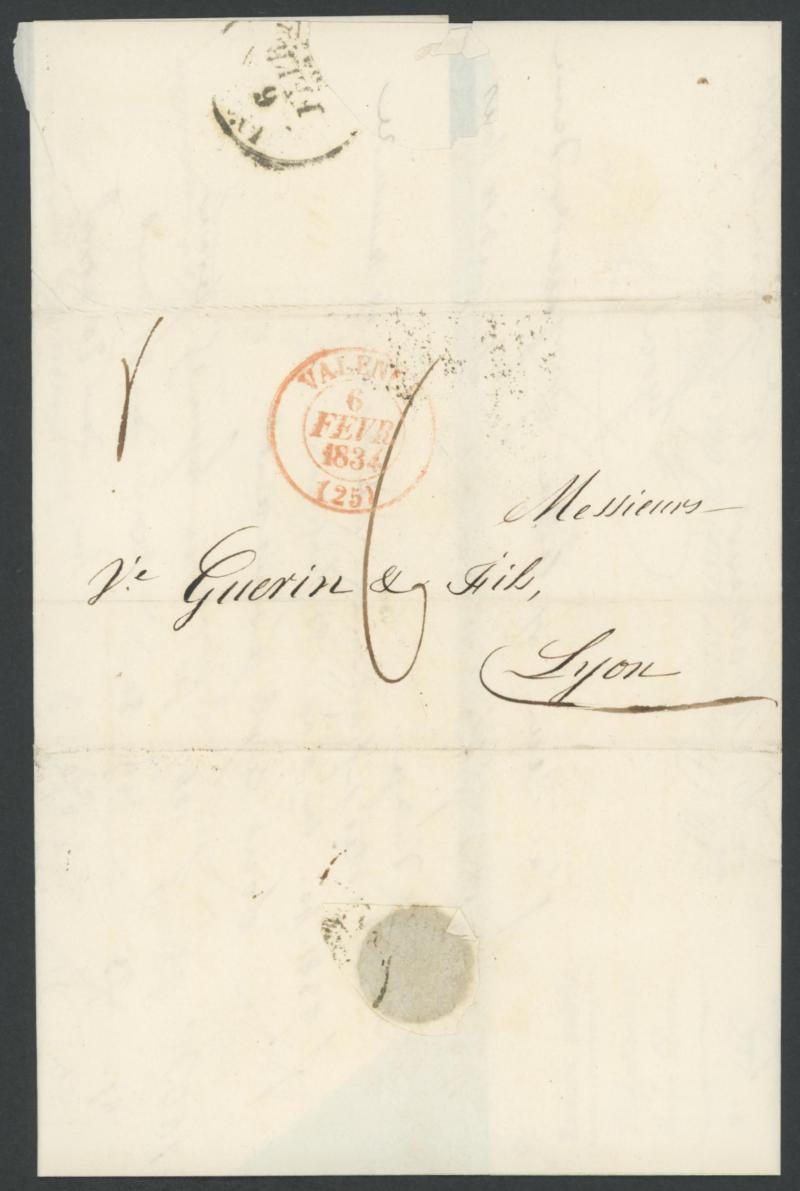 6
FEVR
VALEN
6
FEVR
1834
(25)
6
Messieurs
Ve Guerin & Fils,
Lyon